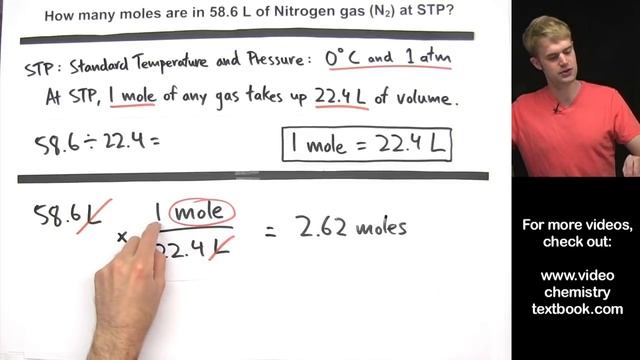 How many moles are in 58.6 L of Nitrogen gas (N₂) at STP?
STP: Standard Temperature and Pressure: 0°C and 1 atm
At STP, 1 mole of any gas takes up 22.4 L of volume.
58.6 ÷ 22.4 =
1 mole = 22.4 L
58.6 L × 1 mole = 2.62 moles
22.4 L
For more videos,
check out:
www.video
chemistry
textbook.com